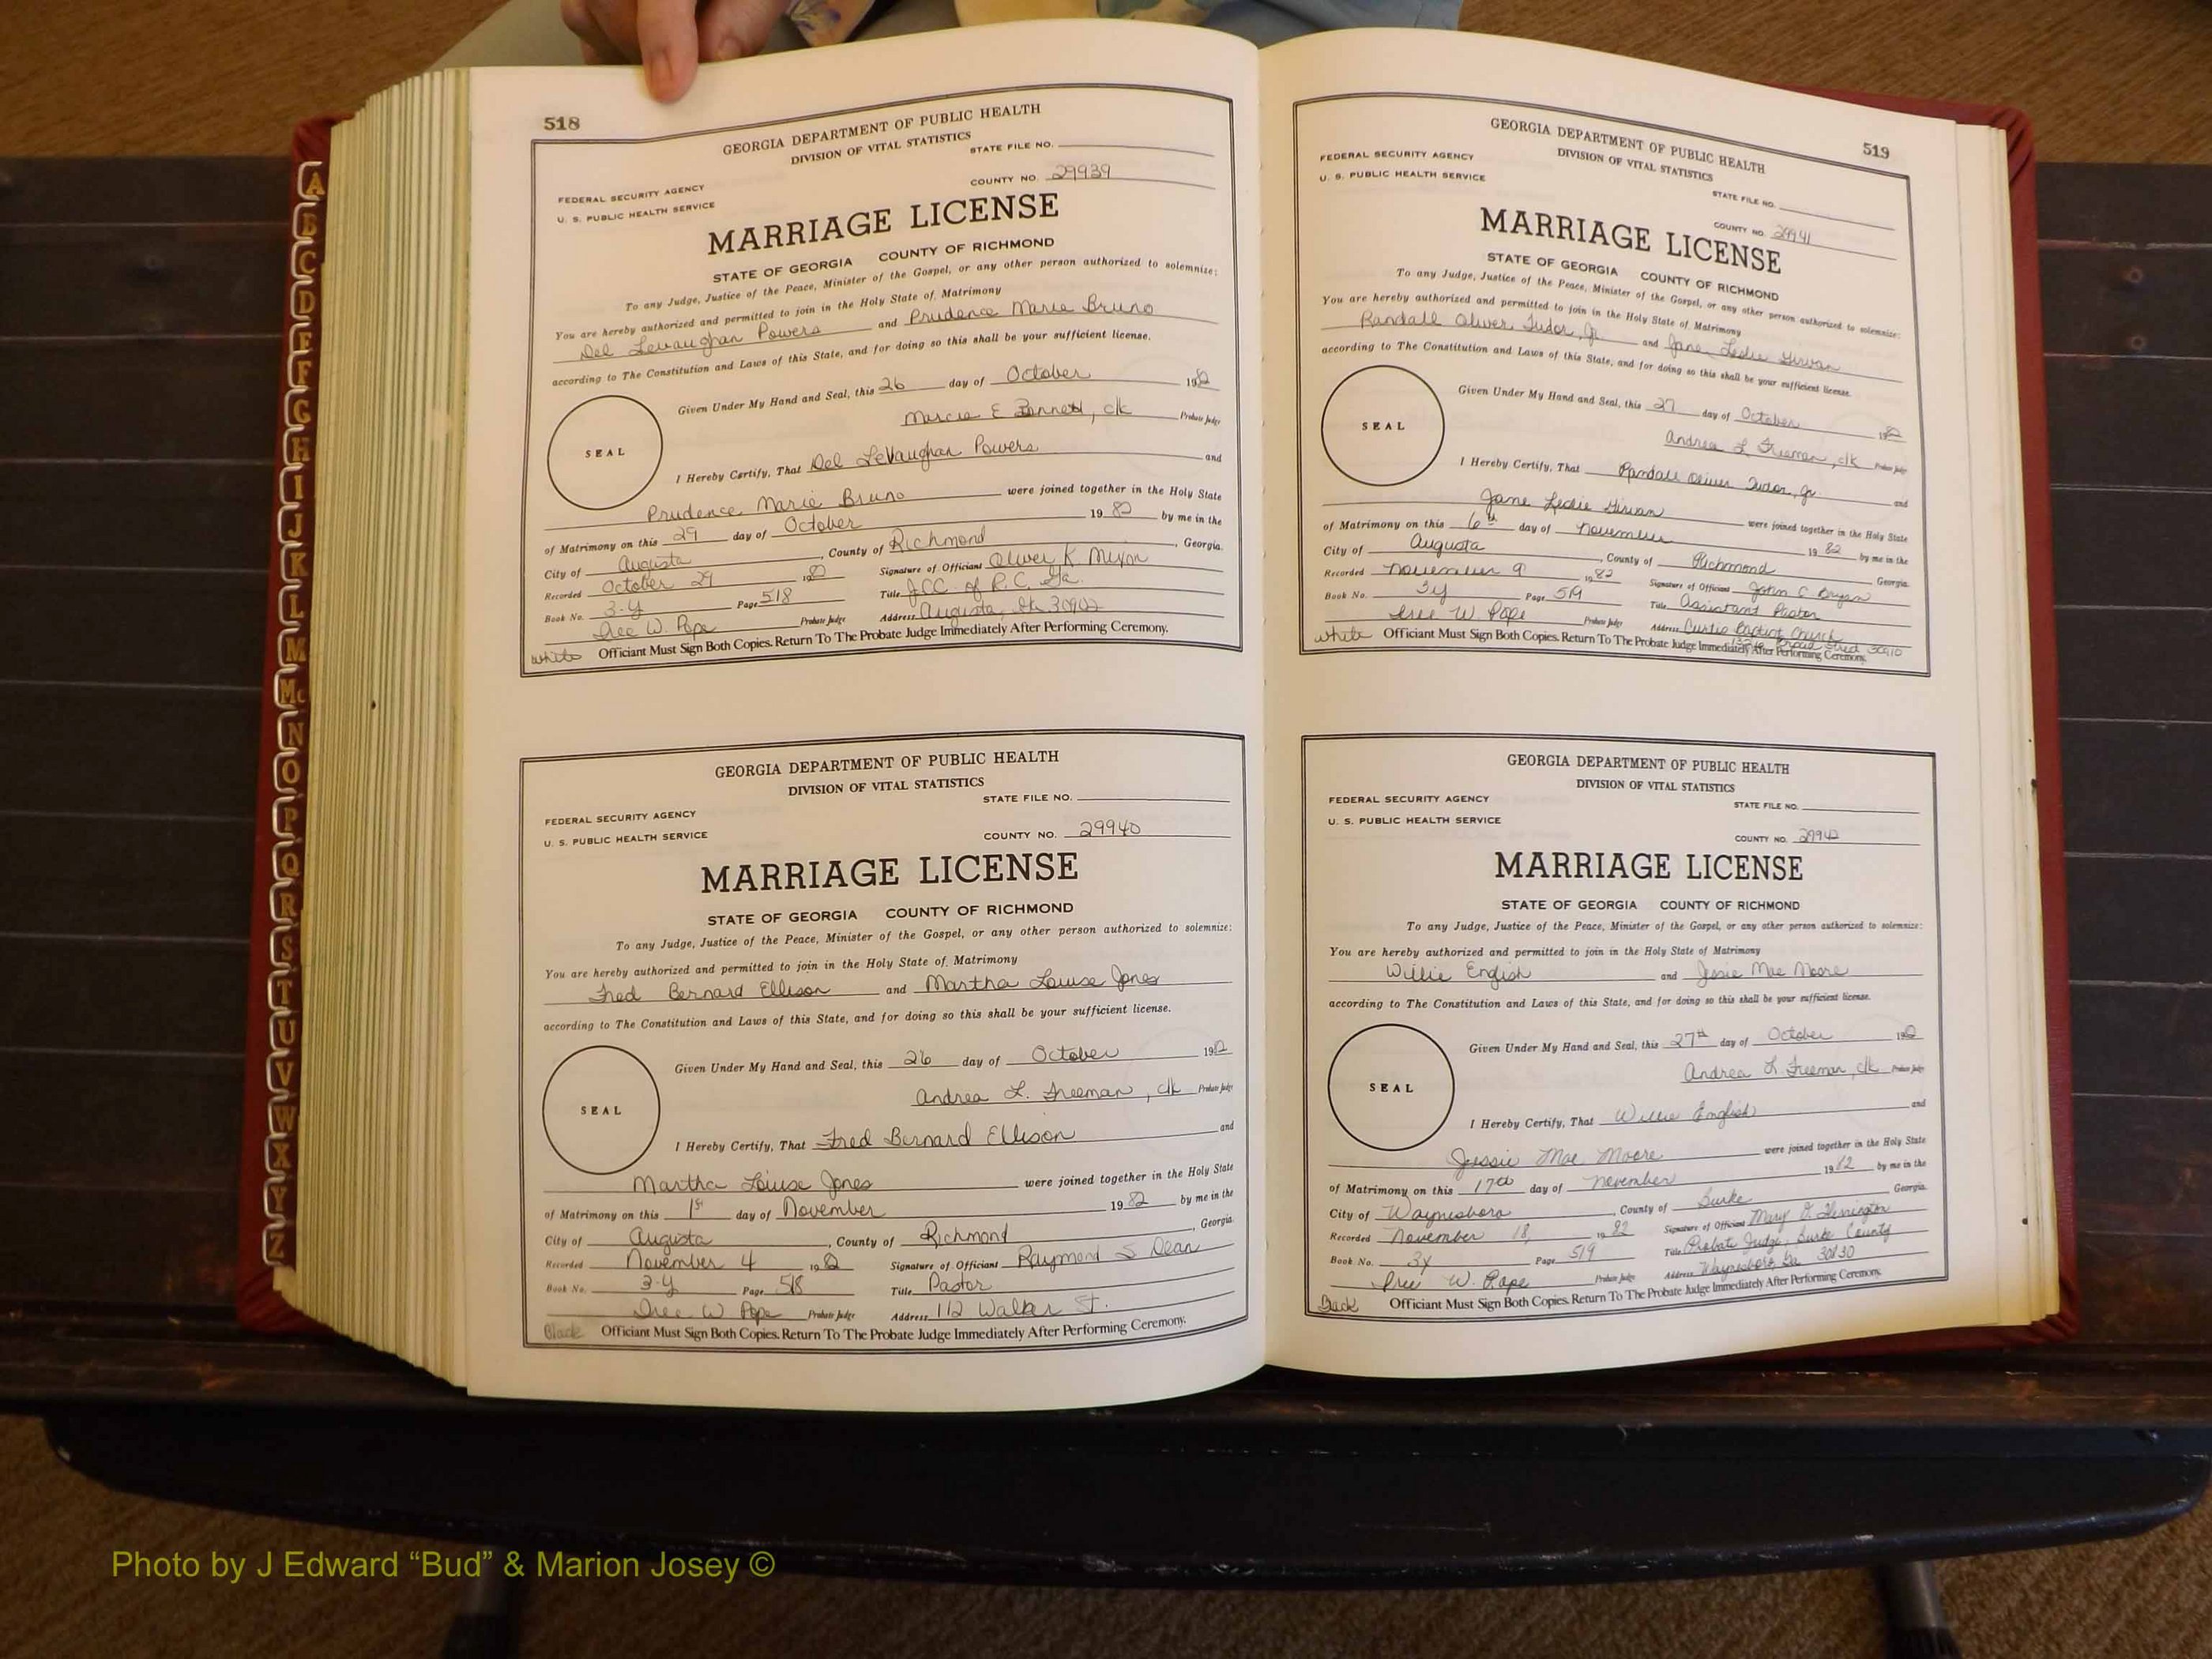 518
GEORGIA DEPARTMENT OF PUBLIC HEALTH
DIVISION OF VITAL STATISTICS
STATE FILE NO.
COUNTY NO. 29939
FEDERAL SECURITY AGENCY
U. S. PUBLIC HEALTH SERVICE
MARRIAGE LICENSE
STATE OF GEORGIA COUNTY OF RICHMOND
To any Judge, Justice of the Peace, Minister of the Gospel, or any other person authorized to solemnize:
You are hereby authorized and permitted to join in the Holy State of, Matrimony
Del Levaughan Powers and Prudence Marie Bruno
according to The Constitution and Laws of this State, and for doing so this shall be your sufficient license.
Given Under My Hand and Seal, this 26 day of October 1982
Marcia E Bennett, clk Probate Judge
SEAL
I Hereby Certify, That Del LeVaughan Powers and
Prudence Marie Bruno were joined together in the Holy State
of Matrimony on this 29 day of October 19 82 by me in the
City of Augusta, County of Richmond, Georgia.
Recorded October 29 1982 Signature of Officiant Oliver K Mixon
Book No. 3-Y Page 518 Title J.C.C. of R.C. Ga.
Probate Judge Address Augusta, Ga 30902
W. Pope
White Officiant Must Sign Both Copies. Return To The Probate Judge Immediately After Performing Ceremony.
GEORGIA DEPARTMENT OF PUBLIC HEALTH
DIVISION OF VITAL STATISTICS
STATE FILE NO.
FEDERAL SECURITY AGENCY
U. S. PUBLIC HEALTH SERVICE
COUNTY NO. 29940
MARRIAGE LICENSE
STATE OF GEORGIA COUNTY OF RICHMOND
To any Judge, Justice of the Peace, Minister of the Gospel, or any other person authorized to solemnize:
You are hereby authorized and permitted to join in the Holy State of, Matrimony
Fred Bernard Ellison and Martha Louise Jones
according to The Constitution and Laws of this State, and for doing so this shall be your sufficient license.
Given Under My Hand and Seal, this 26 day of October 1982
Andrea L. Freeman, clk Probate Judge
SEAL
I Hereby Certify, That Fred Bernard Ellison and
Martha Louise Jones were joined together in the Holy State
of Matrimony on this 1st day of November 19 82 by me in the
City of Augusta, County of Richmond, Georgia.
Recorded November 4 1982 Signature of Officiant Raymond S Dean
Book No. 3-Y Page 518 Title Pastor
W Pope Probate Judge Address 112 Walker St.
Black Officiant Must Sign Both Copies. Return To The Probate Judge Immediately After Performing Ceremony.
519
GEORGIA DEPARTMENT OF PUBLIC HEALTH
DIVISION OF VITAL STATISTICS
FEDERAL SECURITY AGENCY
U. S. PUBLIC HEALTH SERVICE
STATE FILE NO.
COUNTY NO. 29941
MARRIAGE LICENSE
STATE OF GEORGIA COUNTY OF RICHMOND
To any Judge, Justice of the Peace, Minister of the Gospel, or any other person authorized to solemnize:
You are hereby authorized and permitted to join in the Holy State of Matrimony
Randall Oliver Tudor, Jr. and Jane Leslie Girvan
according to The Constitution and Laws of this State, and for doing so this shall be your sufficient license.
Given Under My Hand and Seal, this 27 day of October 1982
Andrea L Freeman, clk Probate Judge
SEAL
I Hereby Certify, That Randall Oliver Tudor, Jr. and
Jane Leslie Girvan were joined together in the Holy State
of Matrimony on this 6th day of November 19 82 by me in the
City of Augusta, County of Richmond Georgia.
Recorded November 9 1982 Signature of Officiant John C Bryan
Book No. 3y Page 519 Title Assistant Pastor
W. Pope Probate Judge Address Curtis Baptist Church
Broad Street 30910
White Officiant Must Sign Both Copies. Return To The Probate Judge Immediately After Performing Ceremony.
GEORGIA DEPARTMENT OF PUBLIC HEALTH
DIVISION OF VITAL STATISTICS
FEDERAL SECURITY AGENCY
STATE FILE NO.
U. S. PUBLIC HEALTH SERVICE
COUNTY NO. 29942
MARRIAGE LICENSE
STATE OF GEORGIA COUNTY OF RICHMOND
To any Judge, Justice of the Peace, Minister of the Gospel, or any other person authorized to solemnize:
You are hereby authorized and permitted to join in the Holy State of Matrimony
Willie English and Jessie Mae Moore
according to The Constitution and Laws of this State, and for doing so this shall be your sufficient license.
Given Under My Hand and Seal, this 27th day of October 1982
Andrea L. Freeman, clk Probate Judge
SEAL
I Hereby Certify, That Willie English and
Jessie Mae Moore were joined together in the Holy State
of Matrimony on this 17th day of November 19 82 by me in the
City of Waynesboro, County of Burke Georgia.
Recorded November 18, 19 82 Signature of Officiant Mary
Book No. 3y Page 519 Title Probate Judge, Burke County
W. Pope Probate Judge Address Waynesboro, Ga 30830
Black Officiant Must Sign Both Copies. Return To The Probate Judge Immediately After Performing Ceremony.
A
B
C
D
E
F
G
H
I
J
K
L
M
Mc
N
O
P
Q
R
S
T
U
V
W
X
Y
Z
Photo by J Edward “Bud” & Marion Josey ©